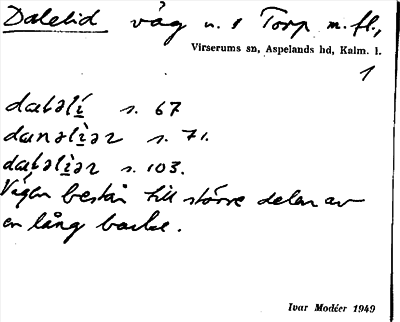 Dalelid väg n. 1 Torp m. fl.,
Virserums sn, Aspelands hd, Kalm. l.
1
s. 67
s. 71.
s. 103.
Vägen består till större delen av
en lång backe.
Ivar Modéer 1949